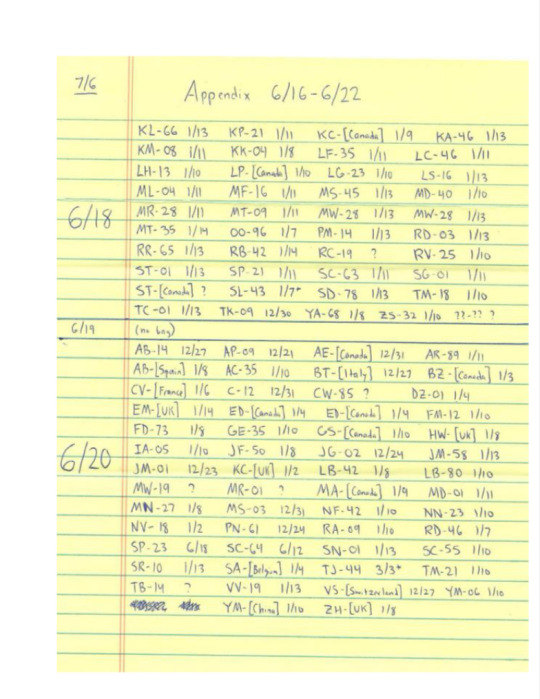 7/6
Appendix 6/16-6/22
KL-66 1/13 KP-21 1/11 KC-[Canada] 1/9 KA-46 1/13
KM-08 1/11 KK-04 1/8 LF-35 1/11 LC-46 1/11
LH-13 1/10 LP-[Canada] 1/10 LG-23 1/10 LS-16 1/13
ML-04 1/11 MF-16 1/11 MS-45 1/13 MD-40 1/10
6/18 MR-28 1/11 MT-09 1/11 MW-28 1/13 MW-28 1/13
MT-35 1/14 OO-96 1/7 PM-14 1/13 RD-03 1/13
RR-65 1/13 RB-42 1/14 RC-19 ? RV-25 1/10
ST-01 1/13 SP-21 1/11 SC-63 1/11 SG-01 1/11
ST-[Canada] ? SL-43 1/7* SD-78 1/13 TM-18 1/10
TC-01 1/13 TK-09 12/30 YA-68 1/8 ZS-32 1/10 ??-?? ?
6/19 (no bag)
AB-14 12/27 AP-09 12/21 AE-[Canada] 12/31 AR-89 1/11
AB-[Spain] 1/8 AC-35 1/10 BT-[Italy] 12/27 BZ-[Canada] 1/3
CV-[France] 1/6 C-12 12/31 CW-85 ? DZ-01 1/4
EM-[UK] 1/14 ED-[Canada] 1/4 ED-[Canada] 1/4 FM-12 1/10
FD-73 1/8 GE-35 1/10 GS-[Canada] 1/10 HW-[UK] 1/8
6/20 IA-05 1/10 JF-50 1/8 JG-02 12/24 JM-58 1/13
JM-01 12/23 KC-[UK] 1/2 LB-42 1/8 LB-80 1/10
MW-19 ? MR-01 ? MA-[Canada] 1/9 MD-01 1/11
MN-27 1/8 MS-03 12/31 NF-42 1/10 NN-23 1/10
NV-18 1/2 PN-61 12/24 RA-09 1/10 RD-46 1/7
SP-23 6/18 SC-64 6/12 SN-01 1/13 SC-55 1/10
SR-10 1/13 SA-[Belgium] 1/4 TJ-44 3/3* TM-21 1/10
TB-14 ? VV-19 1/13 VS-[Switzerland] 12/27 YM-06 1/10
YM-[China] 1/10 ZH-[UK] 1/8